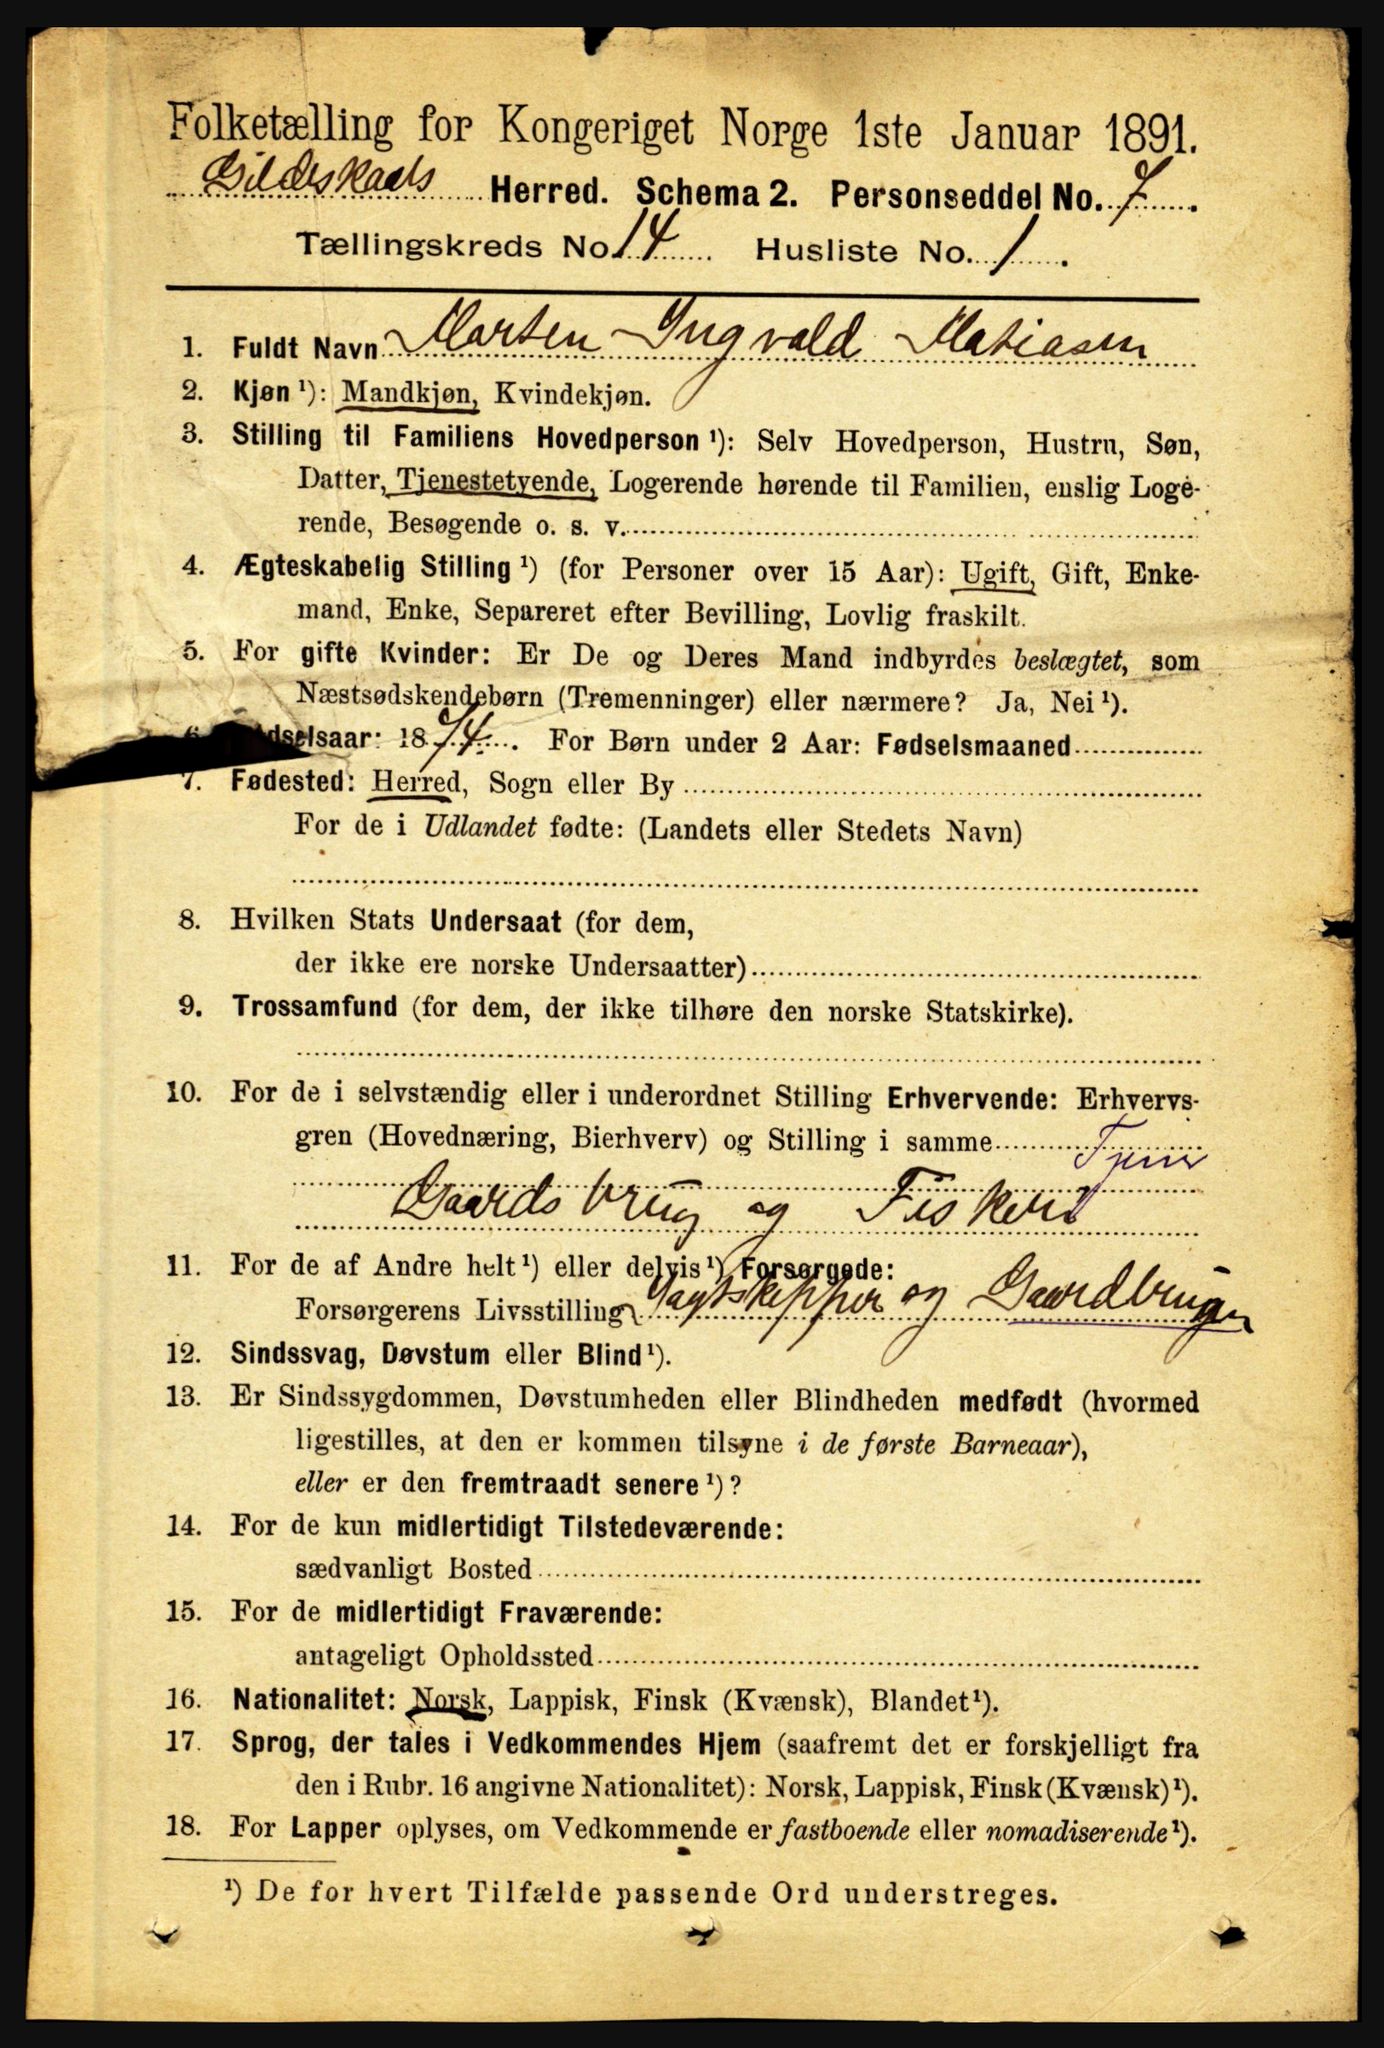 Folketælling for Kongeriget Norge 1ste Januar 1891.
Gildeskaals Herred. Schema 2. Personseddel No. 7.
Tællingskreds No. 14 Husliste No. 1.
1. Fuldt Navn Marten Ingvald Matiasen
2. Kjøn ¹): Mandkjøn, Kvindekjøn.
3. Stilling til Familiens Hovedperson ¹): Selv Hovedperson, Hustru, Søn,
Datter, Tjenestetyende, Logerende hørende til Familien, enslig Loge-
rende, Besøgende o. s. v.
4. Ægteskabelig Stilling ¹) (for Personer over 15 Aar): Ugift, Gift, Enke-
mand, Enke, Separeret efter Bevilling, Lovlig fraskilt.
5. For gifte Kvinder: Er De og Deres Mand indbyrdes beslægtet, som
Næstsødskendebørn (Tremenninger) eller nærmere? Ja, Nei ¹).
6. dselsaar: 1874. For Børn under 2 Aar: Fødselsmaaned
7. Fødested: Herred, Sogn eller By
For de i Udlandet fødte: (Landets eller Stedets Navn)
8. Hvilken Stats Undersaat (for dem,
der ikke ere norske Undersaatter)
9. Trossamfund (for dem, der ikke tilhøre den norske Statskirke).
10. For de i selvstændig eller i underordnet Stilling Erhvervende: Erhvervs-
gren (Hovednæring, Bierhverv) og Stilling i samme Tjener
Gaardsbrug og Fiskeri
11. For de af Andre helt ¹) eller delvis ¹) Forsørgede:
Forsørgerens Livsstilling Jagtskipper og Gaardbruger
12. Sindssvag, Døvstum eller Blind ¹).
13. Er Sindssygdommen, Døvstumheden eller Blindheden medfødt (hvormed
ligestilles, at den er kommen tilsyne i de første Barneaar),
eller er den fremtraadt senere ¹)?
14. For de kun midlertidigt Tilstedeværende:
sædvanligt Bosted
15. For de midlertidigt Fraværende:
antageligt Opholdssted
16. Nationalitet: Norsk, Lappisk, Finsk (Kvænsk), Blandet ¹).
17. Sprog, der tales i Vedkommendes Hjem (saafremt det er forskjelligt fra
den i Rubr. 16 angivne Nationalitet): Norsk, Lappisk, Finsk (Kvænsk) ¹).
18. For Lapper oplyses, om Vedkommende er fastboende eller nomadiserende ¹).
¹) De for hvert Tilfælde passende Ord understreges.